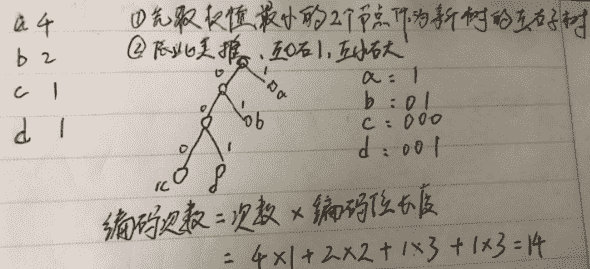 a 4
b 2
c 1
d 1
①先取权值最小的2个节点作为新树的左右子树
②依此类推、左0右1,左小右大
0 1
a
0 1
b
0 1
c d
a: 1
b: 01
c: 000
d: 001
编码次数=次数×编码位长度
= 4×1+2×2+1×3+1×3=14